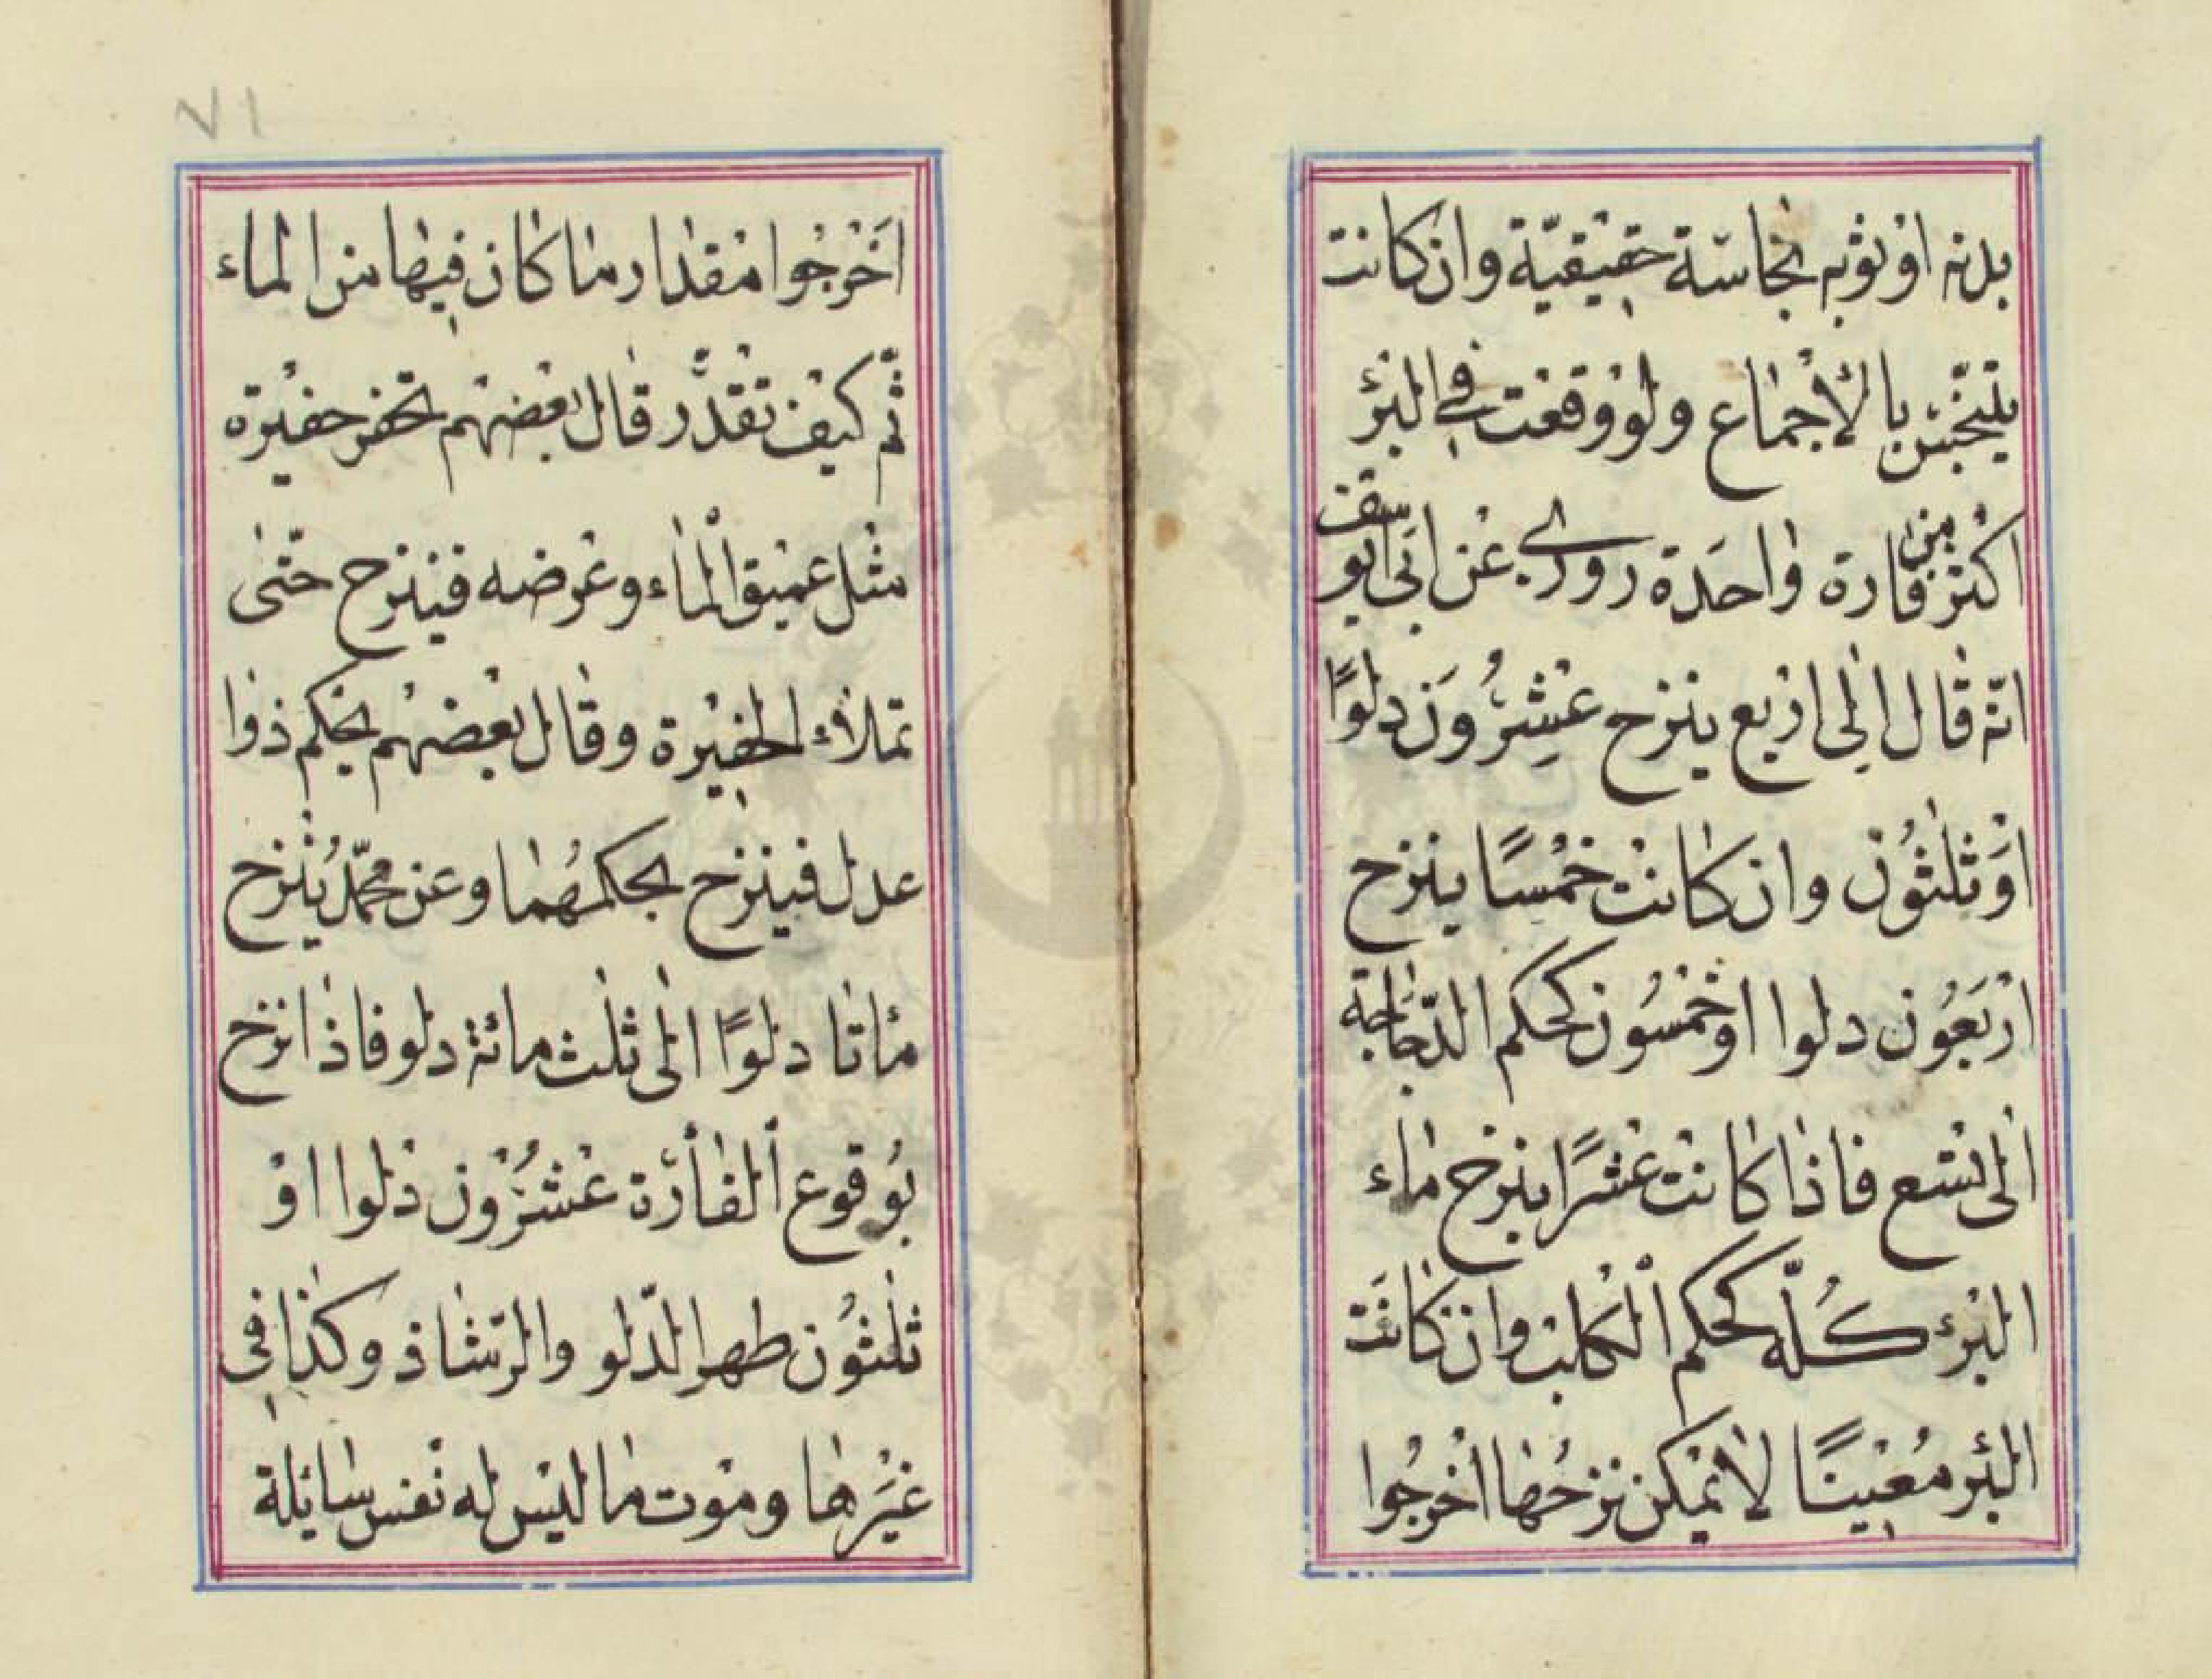 بدنه او ثوبه نجاسة حقيقيّة وان كانت
يتنجّس بالأجماع ولو وقعت في البئر
اكثر من فارة واحدة روى عن ابى ابو يوسف
انّه قال الى اربع ينزح عشرُون دلوًا
اَو ثلثُون وان كانت خمسًا ينزح
اربعُون دلوا او خمسُون كحكم الدّجاجة
الى تسع فاذا كانت عشرًا ينزح ماء
البئر كُلّه كحكم الكلب وان كانت
البئر مُعينًا لا يمكن نزحُها اخرجُوا
٧١
اَخرجُوا مقدار ما كان فيها من الماء
ثمّ كيف تقدّر قال بعضهم تحفر حفيرة
مثل عميق الماء وعرضه فينزح حتّى
تملاء الحفيرة وقال بعضهم يحكم ذوا
عدل فينزح بحكمهُما وعن محمّد يُنزح
مأتا دلوًا الى ثلث مائة دلو فاذا نزح
بوُقوع الفأرة عشرُون دلوا او
ثلثُون طهر الدّلو والرّشاد وكذا فى
غيرها وموت ما ليس له نفس سايلة